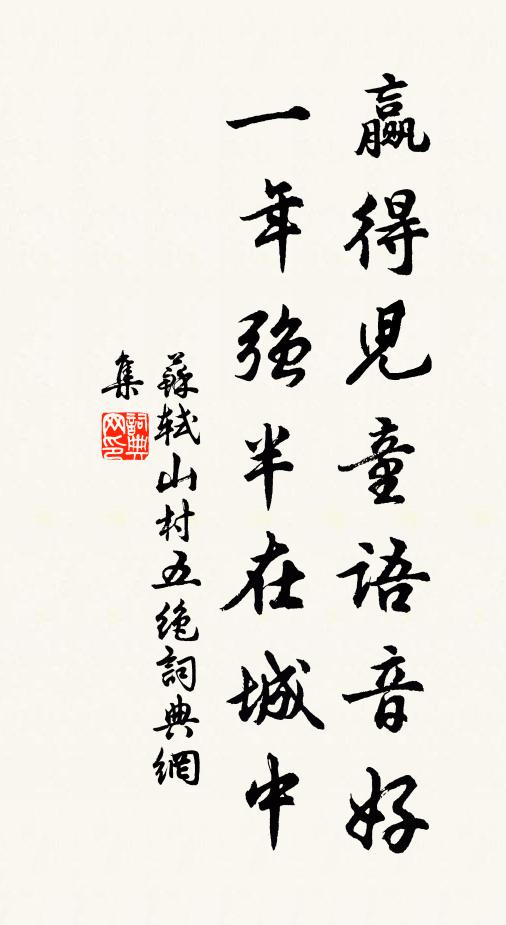 贏得兒童語音好
一年強半在城中
蘇軾山村五絕詞典網
集
詞典
网印